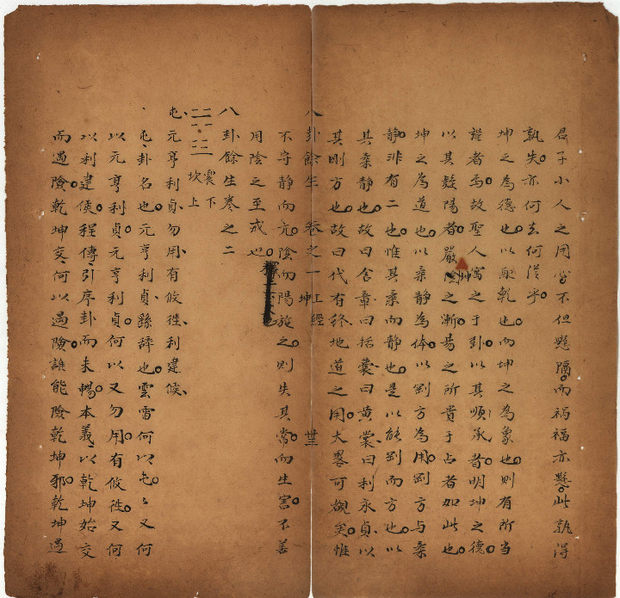 君子小人之用當不但懸隔而禍福亦懸此孰得
孰失亦何去何從乎
坤之為德也以配乾也而坤之為象也則有所當
謹者焉故聖人寓之于引以其順承者明坤之德
以其疑陽者嚴之漸焉之所貴于占者如此也
坤之為道也以柔靜為体以剛方為用剛方與柔
靜非有二也惟其柔而靜也是以能剛而方也以
其柔靜也故曰含章曰括囊曰黃裳曰利永貞以
其剛方也故曰代有終地道之用大畧可覩矣惟
八卦餘生 卷之一上經 坤 世
不守靜而亢陰向陽旋之則失其常而生害不善
用陰之至戒也
八卦餘生卷之二
震下
坎上
屯元亨利貞勿用有攸往利建侯
屯卦名也元亨利貞繇辞也雲雷何以屯屯又何
以元亨利貞元亨利貞何以又勿用有攸往又何
以利建侯程傳引序卦而未暢本義以乾坤始交
而遇險乾坤交何以遇險誰能險乾坤邪乾坤遇